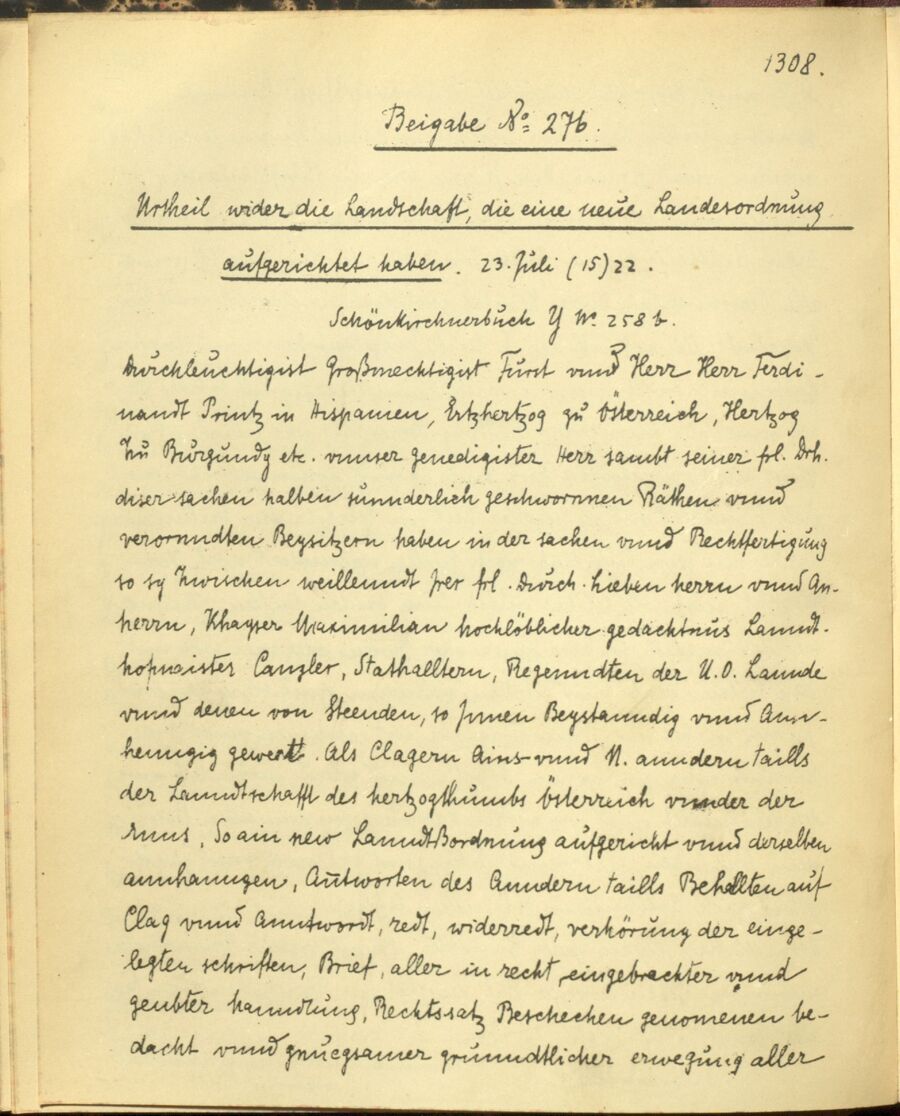 1308.
Beigabe No 276.
Urtheil wider die Landschaft, die eine neue Landesordnung
aufgerichtet haben. 23. Juli (15)22.
Schönkirchnerbuch Y No 258 b.
Durchleuchtigist Großmechtigist Fürst vnnd Herr Herr Ferdi-
nandt Printz in Hispanien, Ertzhertzog zu Österreich, Hertzog
zu Burgundy etc. vnnser genedigister Herr sambt seiner frl. Drh.
diser sachen halben sunnderlich geschwornnen Räthen vnnd
verornndten Beysitzern haben in der sachen vnnd Rechtfertigung
so sy zwischen weillenndt Irer frl. Durch. Lieben herrn vnnd An-
herrn, Khayser Maximilian hochlöblicher gedächtnus Lanndt-
hofmaister Canzler, Stathalltern, Regenndten der U. O. Lannde
vnnd denen von Steenden, so Innen Beystanndig vnnd Ann-
henngig gewest. Als Clagern Ains vnnd N. anndern taills
der Lanndtschafft des hertzogthumbs Österreich vnnder der
Enns, So ain new LanndtBordnung aufgericht vnnd derselben
annhanngen, Antworten des Anndern taills Behallten auf
Clag vnnd Anntwordt, redt, widerredt, verhörung der einge-
legten schriften, Brief, aller in recht eingebrachter vnnd
geubter hanndlung, Rechtssatz Beschechen genomenen be-
dacht vnnd gnuegsamer grunndtlicher erwegung aller